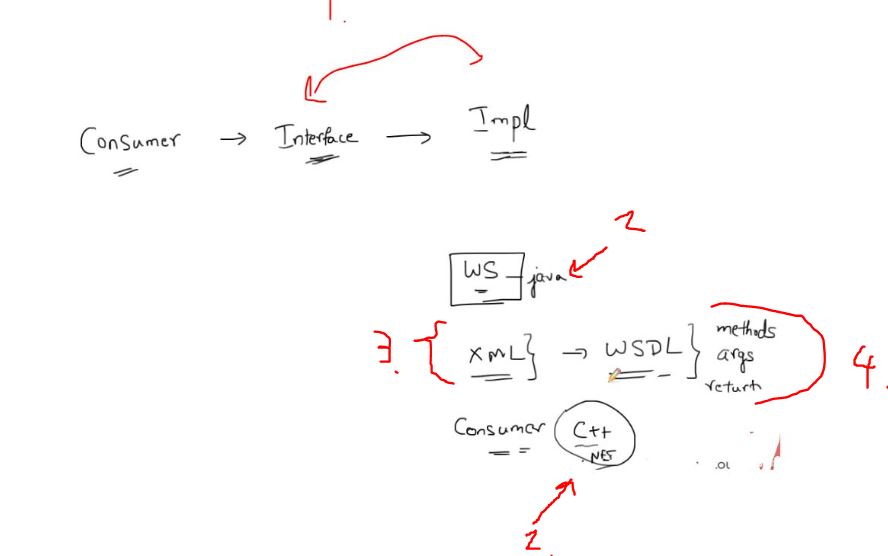 1.
Consumer → Interface → Impl
2
WS - java
3. { XML } → WSDL } methods
args
return
4.
Consumer C++
.NET
.01
2.